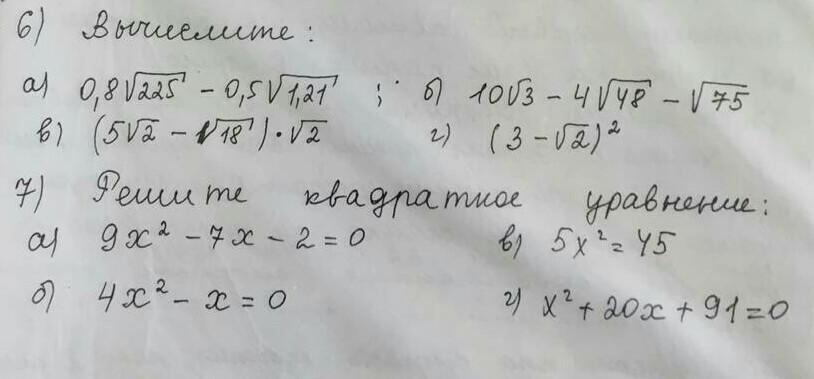 6) Вычислите:
а) 0,8√225 - 0,5√1,21 ; б) 10√3 - 4√48 - √75
в) (5√2 - √18)·√2 г) (3 - √2)²
7) Решите квадратное уравнение:
а) 9x² - 7x - 2 = 0 в) 5x² = 45
б) 4x² - x = 0 г) x² + 20x + 91 = 0